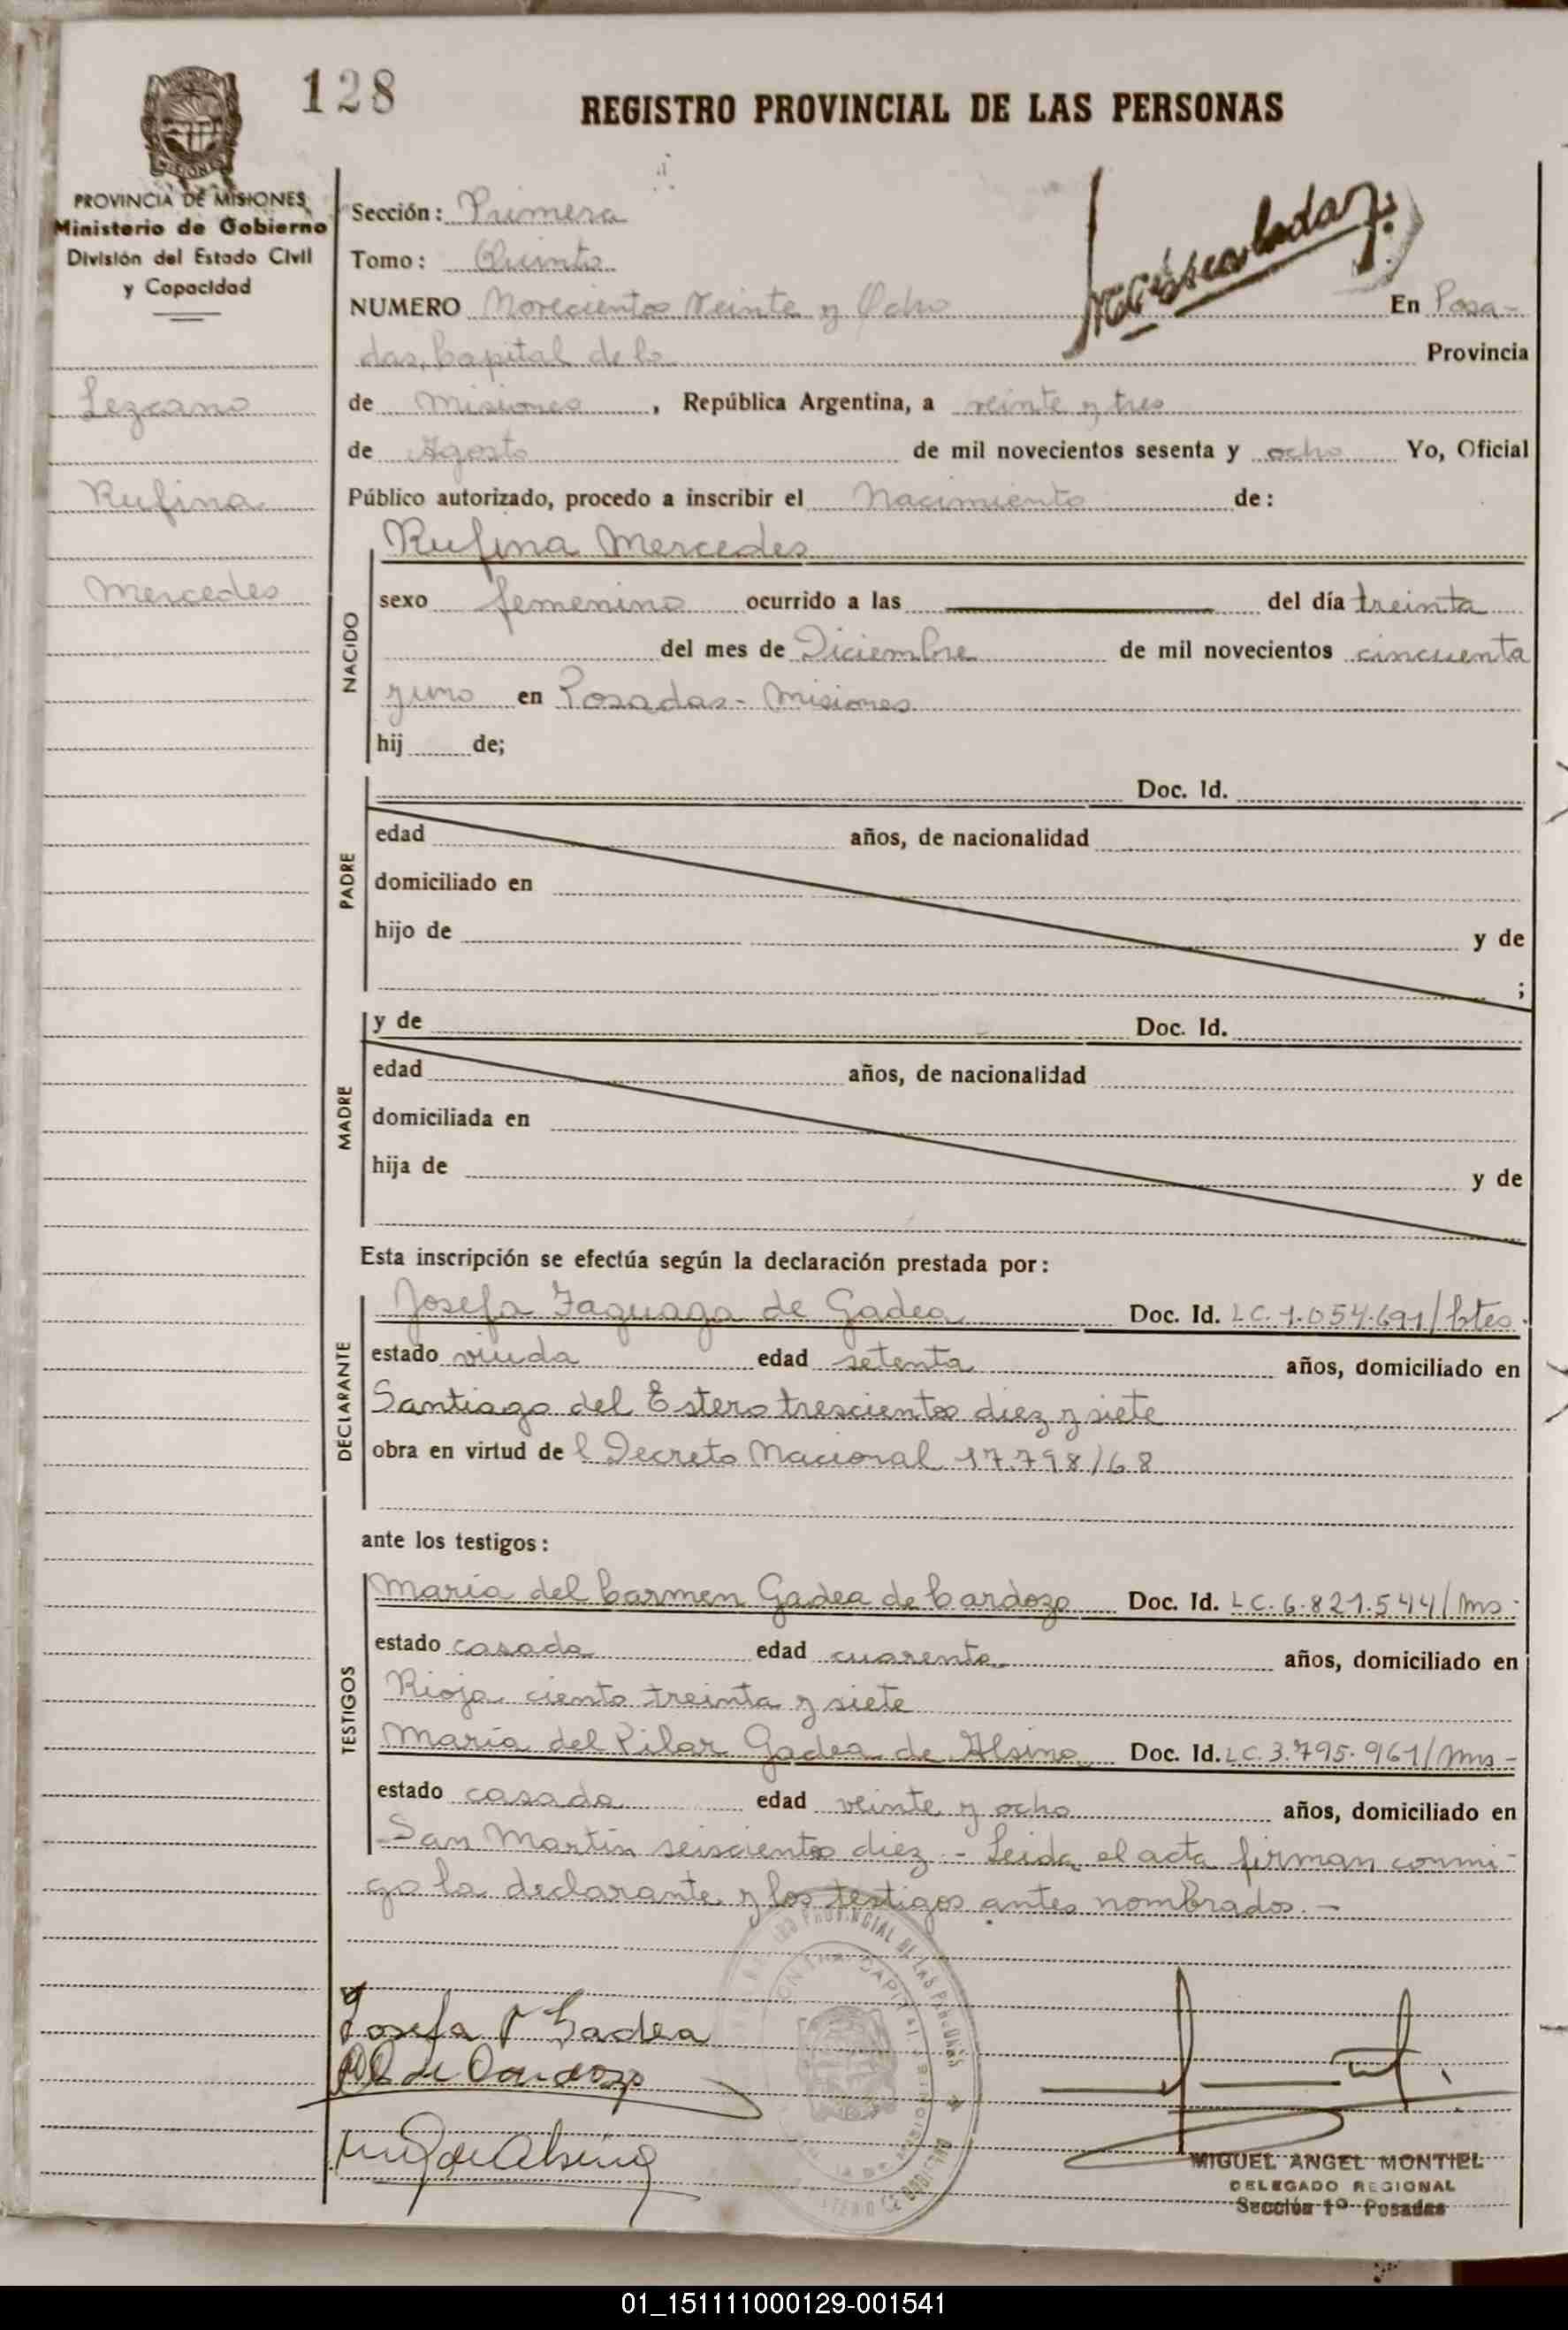 128
REGISTRO PROVINCIAL DE LAS PERSONAS
PROVINCIA DE MISIONES
Ministerio de Gobierno
División del Estado Civil
y Capacidad
Lezcano
Rufina
Mercedes
Sección: Primera
Tomo: Quinto
NUMERO Novecientos Veinte y Ocho En Posa-
das, Capital de la Provincia
de Misiones, República Argentina, a veinte y tres
de Agosto de mil novecientos sesenta y ocho Yo, Oficial
Público autorizado, procedo a inscribir el Nacimiento de:
NACIDO
Rufina Mercedes
sexo femenino ocurrido a las del día treinta
del mes de Diciembre de mil novecientos cincuenta
y uno en Posadas - Misiones
hij de;
PADRE
Doc. Id.
edad años, de nacionalidad
domiciliado en
hijo de y de
;
MADRE
y de Doc. Id.
edad años, de nacionalidad
domiciliada en
hija de y de
Esta inscripción se efectúa según la declaración prestada por:
DECLARANTE
Josefa de Gadea Doc. Id. LC. 1.054.691/Ctes.
estado viuda edad setenta años, domiciliado en
Santiago del Estero trescientos diez y siete
obra en virtud de l Decreto Nacional 17.798/68
ante los testigos:
TESTIGOS
María del Carmen Gadea de Cardozo Doc. Id. LC. 6.821.544/Ms-
estado casada edad cuarenta años, domiciliado en
Rioja ciento treinta y siete
María del Pilar Gadea de Alsina Doc. Id. LC. 3.795.961/Mns-
estado casada edad veinte y ocho años, domiciliado en
San Martín seiscientos diez - Leida el acta firman conmi-
go la declarante y los testigos antes nombrados.-
Josefa Gadea
de Cardozo
de Alsina
MIGUEL ANGEL MONTIEL
DELEGADO REGIONAL
Sección 1º Posadas
01_151111000129-001541